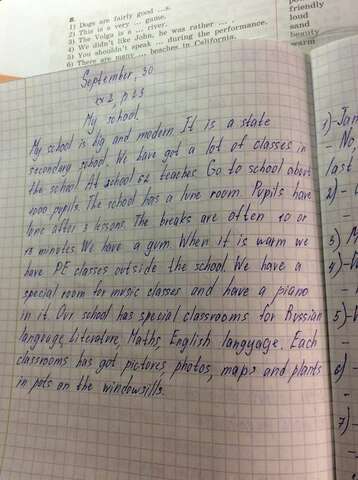 8.
1) Dogs are fairly good ...s.
2) This is a very ... game.
3) The Volga is a ... river.
4) We didn't like John, he was rather ... .
5) You shouldn't speak ... during the performance.
6) There are many ... beaches in California.
friendly
loud
sand
beauty
warm
September, 30
ex 2, p 23
My school
My school is big and modern. It is a state
secondary school. We have got a lot of classes in
the school. At school 52 teacher. Go to school about
1000 pupils. The school has a lune room. Pupils have
lane after 3 lessons. The breaks are often 10 or
15 minutes. We have a gum. When it is warm we
have PE classes outside the school. We have a
special room for music classes and have a piano
in it. Our school has special classrooms for Russian
language, Literature, Maths, English language. Each
classrooms has got pictures, photos, maps and plants
in pots on the windowsills.
1)-
- No,
last
2)-
3)
4)-
5)-
6)-
7)-